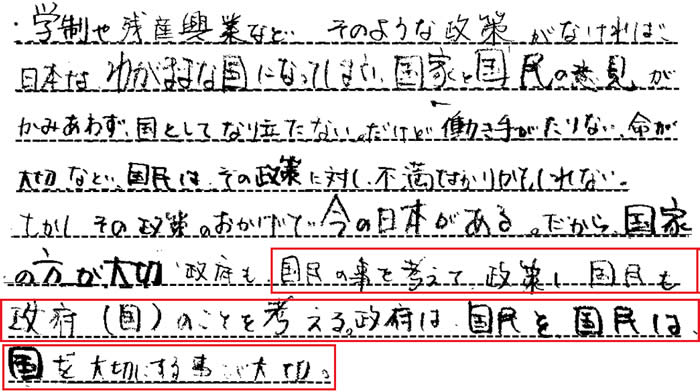 ・学制や残産興業など、そのような政策がなければ、
日本はわがままな国になってしまい、国家と国民の意見が
かみあわず、国としてなり立たない。だけど、働き手がたりない、命が
大切など、国民は、その政策に対し、不満ばかりかもしれない。
しかし、その政策のおかげで、今の日本がある。だから、国家
の方が大切 政府も、国民の事を考えて、政策し、国民も
政府(国)のことを考える。政府は、国民を、国民は、
国を大切にする事が大切。